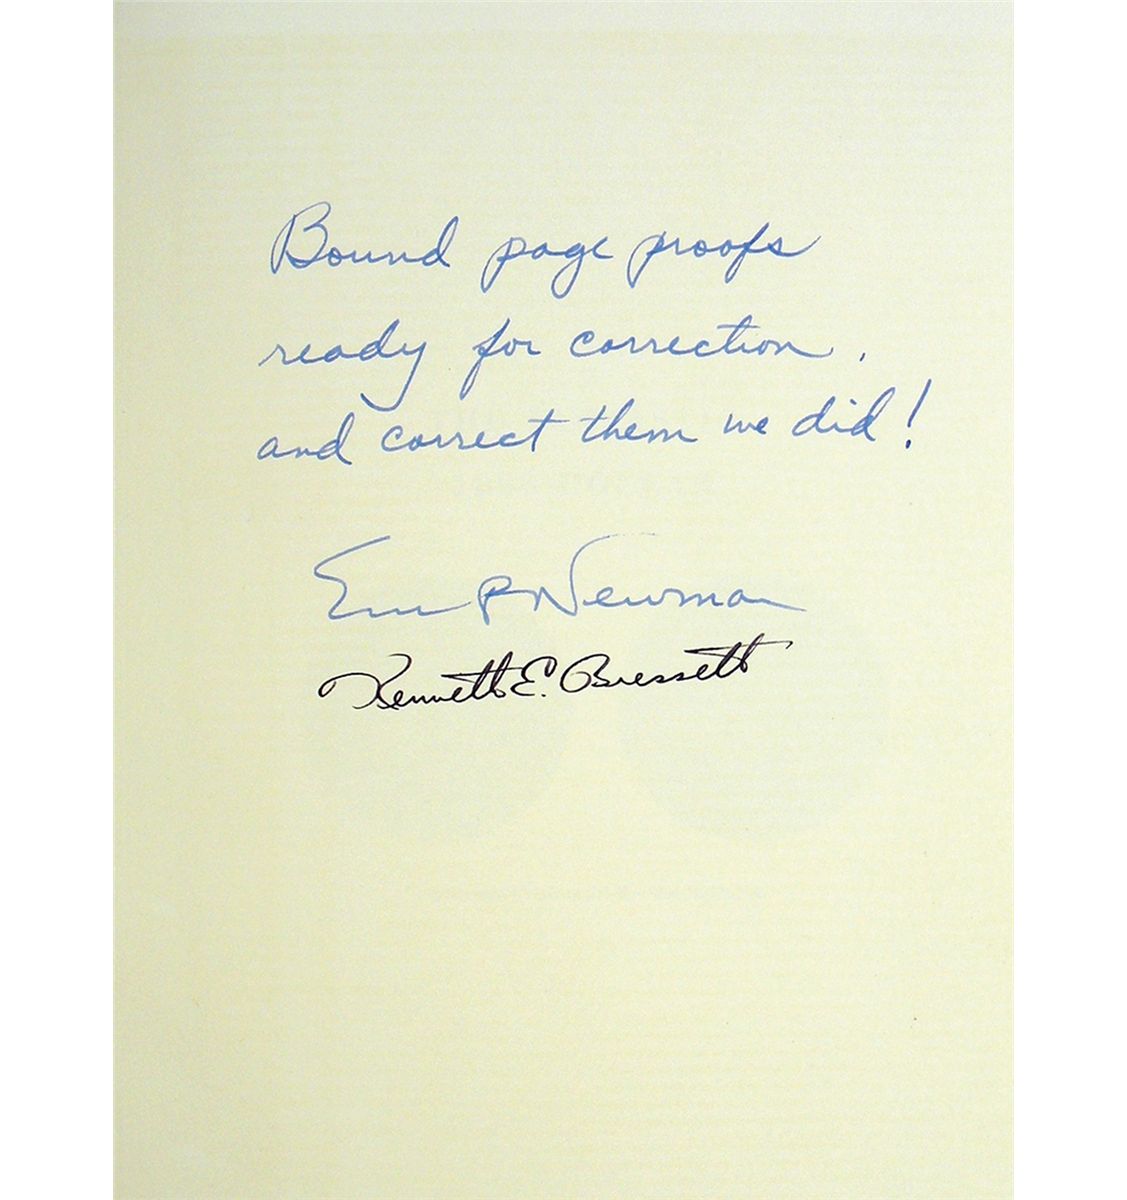 Bound page proofs
ready for correction.
and correct them we did!
Eric P Newman
Kenneth E. Bressett